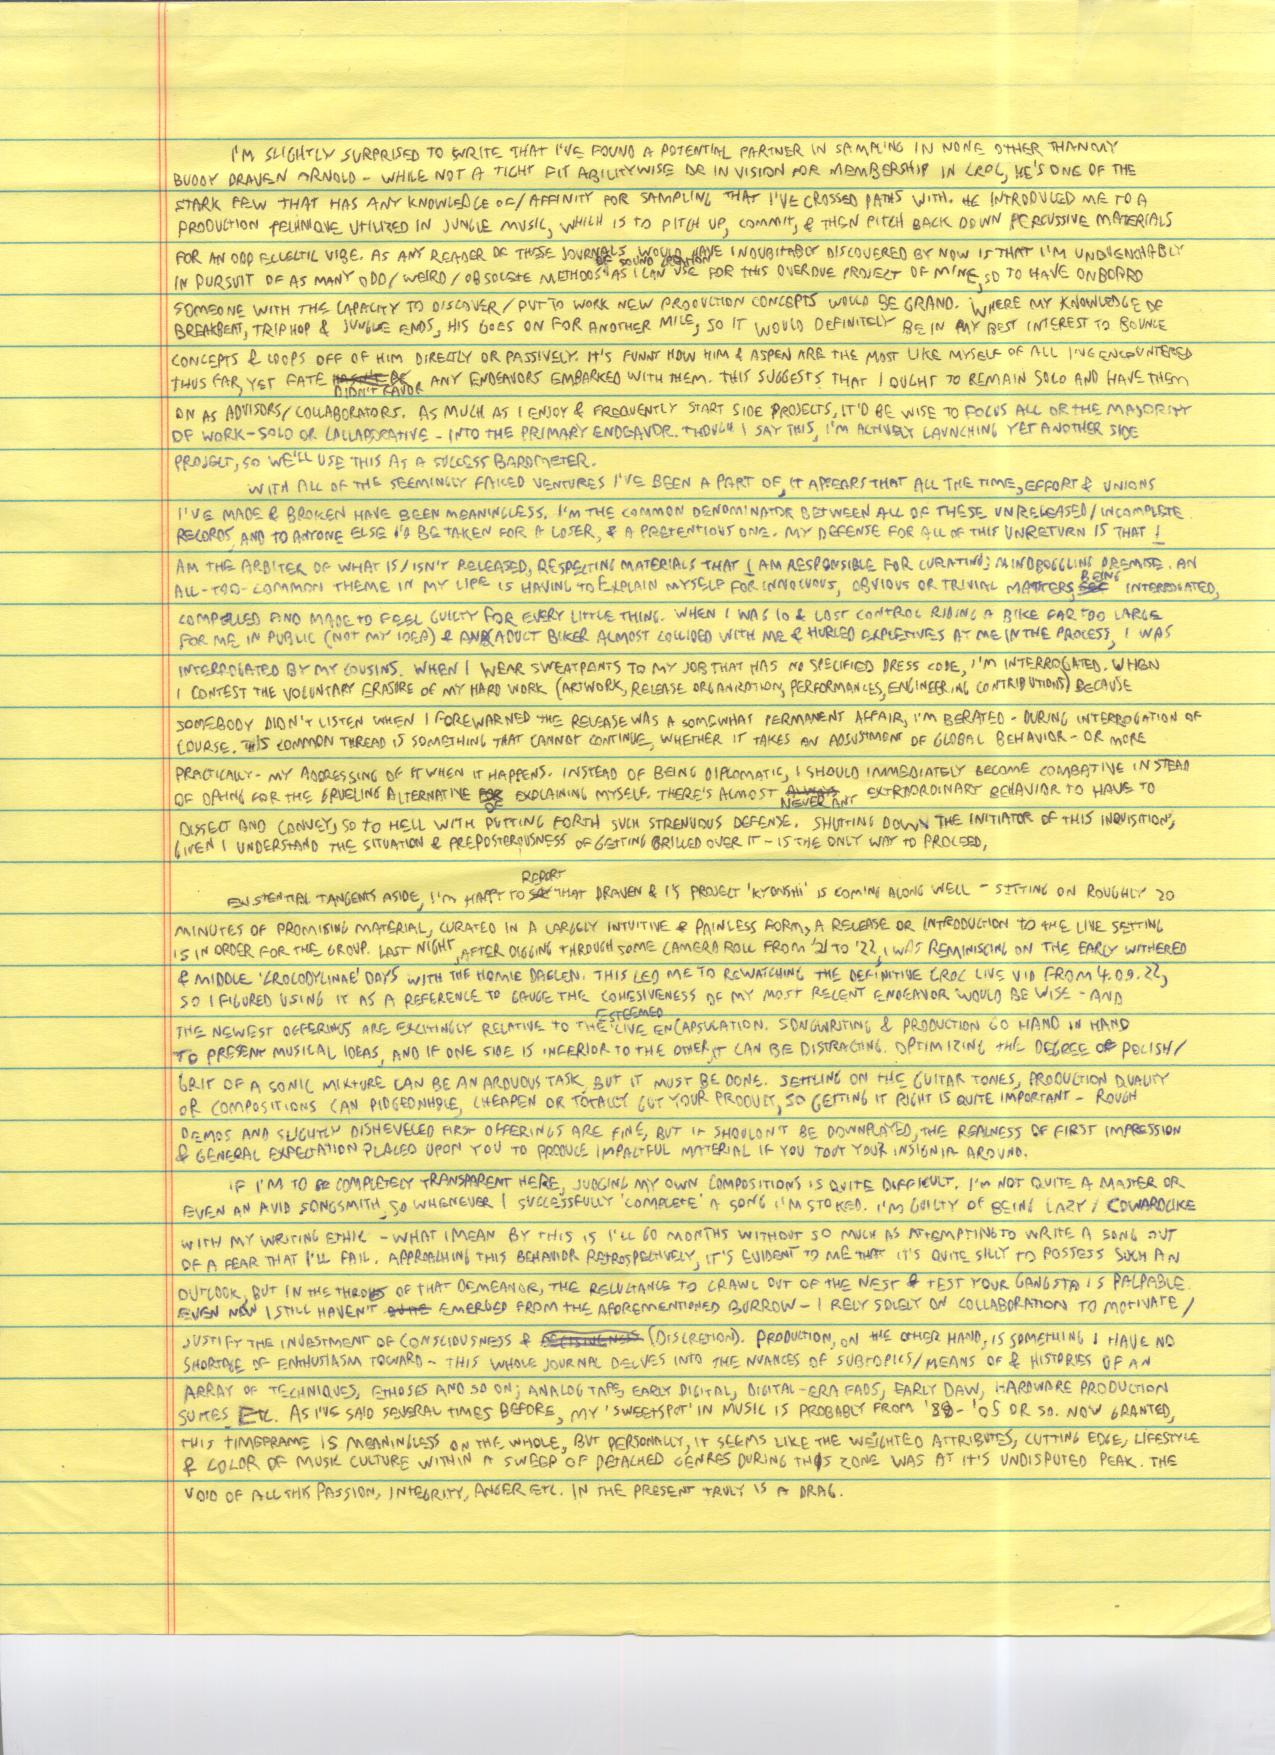 I'M SLIGHTLY SURPRISED TO WRITE THAT I'VE FOUND A POTENTIAL PARTNER IN SAMPLING IN NONE OTHER THAN MY
BUDDY DRAVEN ARNOLD - WHILE NOT A TIGHT FIT ABILITYWISE OR IN VISION FOR MEMBERSHIP IN CROC, HE'S ONE OF THE
STARK FEW THAT HAS ANY KNOWLEDGE OF/AFFINITY FOR SAMPLING THAT I'VE CROSSED PATHS WITH. HE INTRODUCED ME TO A
PRODUCTION TECHNIQUE UTILIZED IN JUNGLE MUSIC, WHICH IS TO PITCH UP, COMMIT, & THEN PITCH BACK DOWN PERCUSSIVE MATERIALS
FOR AN ODD ECLECTIC VIBE. AS ANY READER OF THESE JOURNALS WOULD HAVE INDUBITABLY DISCOVERED BY NOW IS THAT I'M UNQUENCHABLY
IN PURSUIT OF AS MANY ODD/WEIRD/OBSOLETE METHODS OF SOUND CREATION AS I CAN USE FOR THIS OVERDUE PROJECT OF MINE, SO TO HAVE ONBOARD
SOMEONE WITH THE CAPACITY TO DISCOVER/PUT TO WORK NEW PRODUCTION CONCEPTS WOULD BE GRAND. WHERE MY KNOWLEDGE OF
BREAKBEAT, TRIP HOP & JUNGLE ENDS, HIS GOES ON FOR ANOTHER MILE, SO IT WOULD DEFINITELY BE IN MY BEST INTEREST TO BOUNCE
CONCEPTS & LOOPS OFF OF HIM DIRECTLY OR PASSIVELY. IT'S FUNNY HOW HIM & ASPEN ARE THE MOST LIKE MYSELF OF ALL I'VE ENCOUNTERED
THUS FAR, YET FATE DIDN'T FAVOR ANY ENDEAVORS EMBARKED WITH THEM. THIS SUGGESTS THAT I OUGHT TO REMAIN SOLO AND HAVE THEM
ON AS ADVISORS/COLLABORATORS. AS MUCH AS I ENJOY & FREQUENTLY START SIDE PROJECTS, IT'D BE WISE TO FOCUS ALL OR THE MAJORITY
OF WORK - SOLO OR COLLABORATIVE - INTO THE PRIMARY ENDEAVOR. THOUGH I SAY THIS, I'M ACTIVELY LAUNCHING YET ANOTHER SIDE
PROJECT, SO WE'LL USE THIS AS A SUCCESS BAROMETER.
WITH ALL OF THE SEEMINGLY FAILED VENTURES I'VE BEEN A PART OF, IT APPEARS THAT ALL THE TIME, EFFORT & UNIONS
I'VE MADE & BROKEN HAVE BEEN MEANINGLESS. I'M THE COMMON DENOMINATOR BETWEEN ALL OF THESE UNRELEASED/INCOMPLETE
RECORDS, AND TO ANYONE ELSE I'D BE TAKEN FOR A LOSER, & A PRETENTIOUS ONE. MY DEFENSE FOR ALL OF THIS UNRETURN IS THAT I
AM THE ARBITER OF WHAT IS/ISN'T RELEASED, RESPECTING MATERIALS THAT I AM RESPONSIBLE FOR CURATING; MINDBOGGLING PREMISE. AN
ALL-TOO-COMMON THEME IN MY LIFE IS HAVING TO EXPLAIN MYSELF FOR INNOCUOUS, OBVIOUS OR TRIVIAL MATTERS, BEING INTERROGATED,
COMPELLED AND MADE TO FEEL GUILTY FOR EVERY LITTLE THING. WHEN I WAS 10 & LOST CONTROL RIDING A BIKE FAR TOO LARGE
FOR ME IN PUBLIC (NOT MY IDEA) & AN ADULT BIKER ALMOST COLLIDED WITH ME & HURLED EXPLETIVES AT ME IN THE PROCESS, I WAS
INTERROGATED BY MY COUSINS. WHEN I WEAR SWEATPANTS TO MY JOB THAT HAS NO SPECIFIED DRESS CODE, I'M INTERROGATED. WHEN
I CONTEST THE VOLUNTARY ERASURE OF MY HARD WORK (ARTWORK, RELEASE ORGANIZATION, PERFORMANCES, ENGINEERING CONTRIBUTIONS) BECAUSE
SOMEBODY DIDN'T LISTEN WHEN I FOREWARNED THE RELEASE WAS A SOMEWHAT PERMANENT AFFAIR, I'M BERATED - DURING INTERROGATION OF
COURSE. THIS COMMON THREAD IS SOMETHING THAT CANNOT CONTINUE, WHETHER IT TAKES AN ADJUSTMENT OF GLOBAL BEHAVIOR - OR MORE
PRACTICALLY - MY ADDRESSING OF IT WHEN IT HAPPENS. INSTEAD OF BEING DIPLOMATIC, I SHOULD IMMEDIATELY BECOME COMBATIVE INSTEAD
OF OPTING FOR THE GRUELING ALTERNATIVE OF EXPLAINING MYSELF. THERE'S ALMOST NEVER ANY EXTRAORDINARY BEHAVIOR TO HAVE TO
DISSECT AND CONVEY, SO TO HELL WITH PUTTING FORTH SUCH STRENUOUS DEFENSE. SHUTTING DOWN THE INITIATOR OF THIS INQUISITION,
GIVEN I UNDERSTAND THE SITUATION & PREPOSTEROUSNESS OF GETTING GRILLED OVER IT - IS THE ONLY WAY TO PROCEED.
EXISTENTIAL TANGENTS ASIDE, I'M HAPPY TO REPORT THAT DRAVEN & I'S PROJECT 'KYONSHI' IS COMING ALONG WELL - SITTING ON ROUGHLY 20
MINUTES OF PROMISING MATERIAL, CURATED IN A LARGELY INTUITIVE & PAINLESS FORM, A RELEASE OR INTRODUCTION TO THE LIVE SETTING
IS IN ORDER FOR THE GROUP. LAST NIGHT, AFTER DIGGING THROUGH SOME CAMERA ROLL FROM '21 TO '22, I WAS REMINISCING ON THE EARLY WITHERED
& MIDDLE 'CROCODYLINAE' DAYS WITH THE HOMIE DAELEN. THIS LED ME TO REWATCHING THE DEFINITIVE CROC LIVE VID FROM 4.09.22,
SO I FIGURED USING IT AS A REFERENCE TO GAUGE THE COHESIVENESS OF MY MOST RECENT ENDEAVOR WOULD BE WISE - AND
THE NEWEST OFFERINGS ARE EXCITINGLY RELATIVE TO THE ESTEEMED LIVE ENCAPSULATION. SONGWRITING & PRODUCTION GO HAND IN HAND
TO PRESENT MUSICAL IDEAS, AND IF ONE SIDE IS INFERIOR TO THE OTHER, IT CAN BE DISTRACTING. OPTIMIZING THE DEGREE OF POLISH/
GRIT OF A SONIC MIXTURE CAN BE AN ARDUOUS TASK, BUT IT MUST BE DONE. SETTLING ON THE GUITAR TONES, PRODUCTION QUALITY
OR COMPOSITIONS CAN PIDGEONHOLE, CHEAPEN OR TOTALLY GUT YOUR PRODUCT, SO GETTING IT RIGHT IS QUITE IMPORTANT - ROUGH
DEMOS AND SLIGHTLY DISHEVELED FIRST OFFERINGS ARE FINE, BUT IT SHOULDN'T BE DOWNPLAYED, THE REALNESS OF FIRST IMPRESSION
& GENERAL EXPECTATION PLACED UPON YOU TO PRODUCE IMPACTFUL MATERIAL IF YOU TOUT YOUR INSIGNIA AROUND.
IF I'M TO BE COMPLETELY TRANSPARENT HERE, JUDGING MY OWN COMPOSITIONS IS QUITE DIFFICULT. I'M NOT QUITE A MASTER OR
EVEN AN AVID SONGSMITH, SO WHENEVER I SUCCESSFULLY 'COMPLETE' A SONG I'M STOKED. I'M GUILTY OF BEING LAZY/COWARDLIKE
WITH MY WRITING ETHIC - WHAT I MEAN BY THIS IS I'LL GO MONTHS WITHOUT SO MUCH AS ATTEMPTING TO WRITE A SONG OUT
OF A FEAR THAT I'LL FAIL. APPROACHING THIS BEHAVIOR RETROSPECTIVELY, IT'S EVIDENT TO ME THAT IT'S QUITE SILLY TO POSSESS SUCH AN
OUTLOOK, BUT IN THE THROES OF THAT DEMEANOR, THE RELUCTANCE TO CRAWL OUT OF THE NEST & TEST YOUR GANGSTA IS PALPABLE.
EVEN NOW I STILL HAVEN'T EMERGED FROM THE AFOREMENTIONED BURROW - I RELY SOLELY ON COLLABORATION TO MOTIVATE/
JUSTIFY THE INVESTMENT OF CONSCIOUSNESS & (DISCRETION). PRODUCTION, ON THE OTHER HAND, IS SOMETHING I HAVE NO
SHORTAGE OF ENTHUSIASM TOWARD - THIS WHOLE JOURNAL DELVES INTO THE NUANCES OF SUBTOPICS/MEANS OF & HISTORIES OF AN
ARRAY OF TECHNIQUES, ETHOSES AND SO ON; ANALOG TAPE, EARLY DIGITAL, DIGITAL-ERA FADS, EARLY DAW, HARDWARE PRODUCTION
SUITES ETC. AS I'VE SAID SEVERAL TIMES BEFORE, MY 'SWEETSPOT' IN MUSIC IS PROBABLY FROM '88-'05 OR SO. NOW GRANTED,
THIS TIMEFRAME IS MEANINGLESS ON THE WHOLE, BUT PERSONALLY, IT SEEMS LIKE THE WEIGHTED ATTRIBUTES, CUTTING EDGE, LIFESTYLE
& COLOR OF MUSIC CULTURE WITHIN A SWEEP OF DETACHED GENRES DURING THIS ZONE WAS AT IT'S UNDISPUTED PEAK. THE
VOID OF ALL THIS PASSION, INTEGRITY, ANGER ETC. IN THE PRESENT TRULY IS A DRAG.